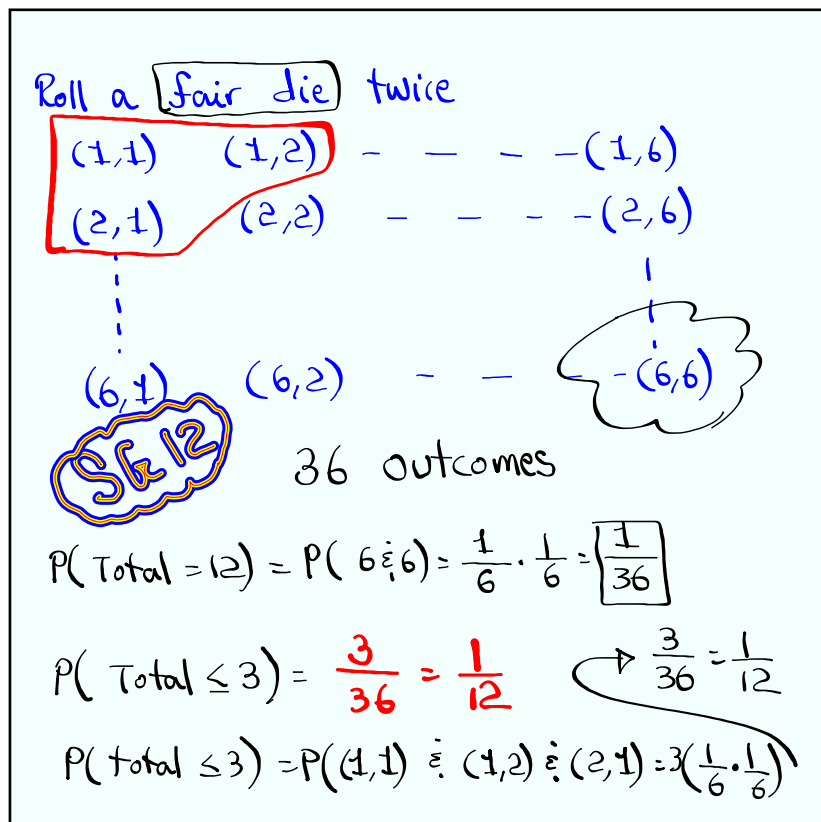 Roll a fair die twice
(1,1) (1,2) - - - - (1,6)
(2,1) (2,2) - - - - (2,6)
(6,1) (6,2) - - - - (6,6)
SG 12
36 outcomes
P( Total = 12) = P( 6 & 6) = 1/6 · 1/6 = 1/36
P( Total ≤ 3) = 3/36 = 1/12 → 3/36 = 1/12
P( total ≤ 3) = P((1,1) & (1,2) & (2,1) = 3(1/6 · 1/6)